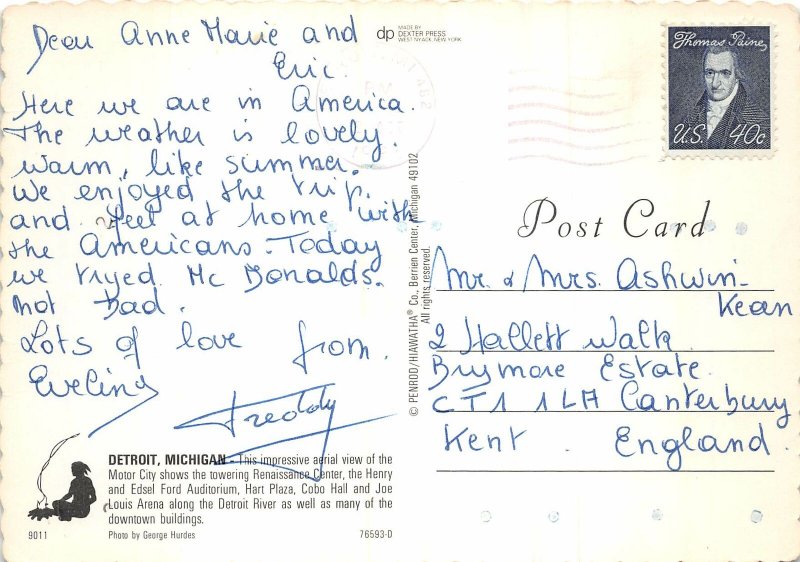 Dear Anne Marie and
Eric.
Here we are in America.
The weather is lovely.
warm, like summer.
We enjoyed the trip.
and feel at home with
the Americans. Today
we tryed Mc Donalds.
not bad.
Lots of love from.
Eveline
Freddy
DETROIT, MICHIGAN - This impressive aerial view of the
Motor City shows the towering Renaissance Center, the Henry
and Edsel Ford Auditorium, Hart Plaza, Cobo Hall and Joe
Louis Arena along the Detroit River as well as many of the
downtown buildings.
9011
Photo by George Hurdes
76593-D
dp
MADE BY
DEXTER PRESS
WEST NYACK, NEW YORK
© PENROD/HIAWATHA® Co., Berrien Center, Michigan 49102
All rights reserved.
Thomas Paine
U.S. 40c
Post Card
Mr. & Mrs. Ashwin-
Kean
2 Hallett Walk
Brymore Estate.
CT1 1LA Canterbury
Kent. England.